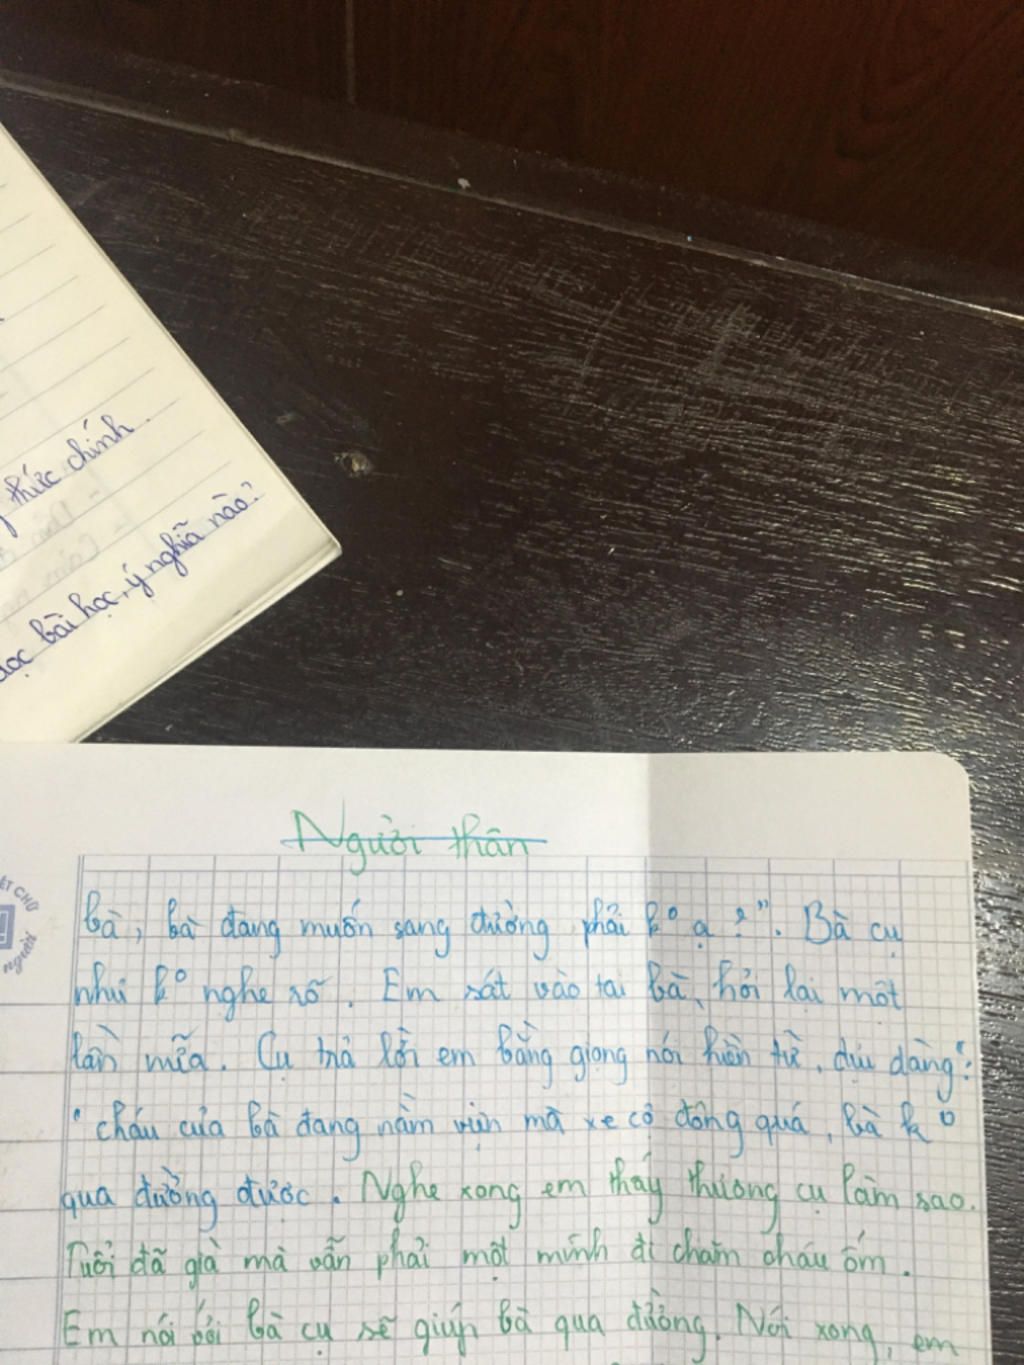 thức chính.
bài học, ý nghĩa nào?
Người thân
bà, bà đang muốn sang đường phải k° ạ?". Bà cụ
như k° nghe rõ. Em sát vào tai bà, hỏi lại một
lần nữa. Cụ trả lời em bằng giọng nói hiền từ, dịu dàng:
"cháu của bà đang nằm viện mà xe cộ đông quá, bà k°
qua đường được. Nghe xong em thấy thương cụ làm sao.
Tuổi đã già mà vẫn phải một mình đi chăm cháu ốm.
Em nói với bà cụ sẽ giúp bà qua đường. Nói xong, em
ẾT CHỮ
người